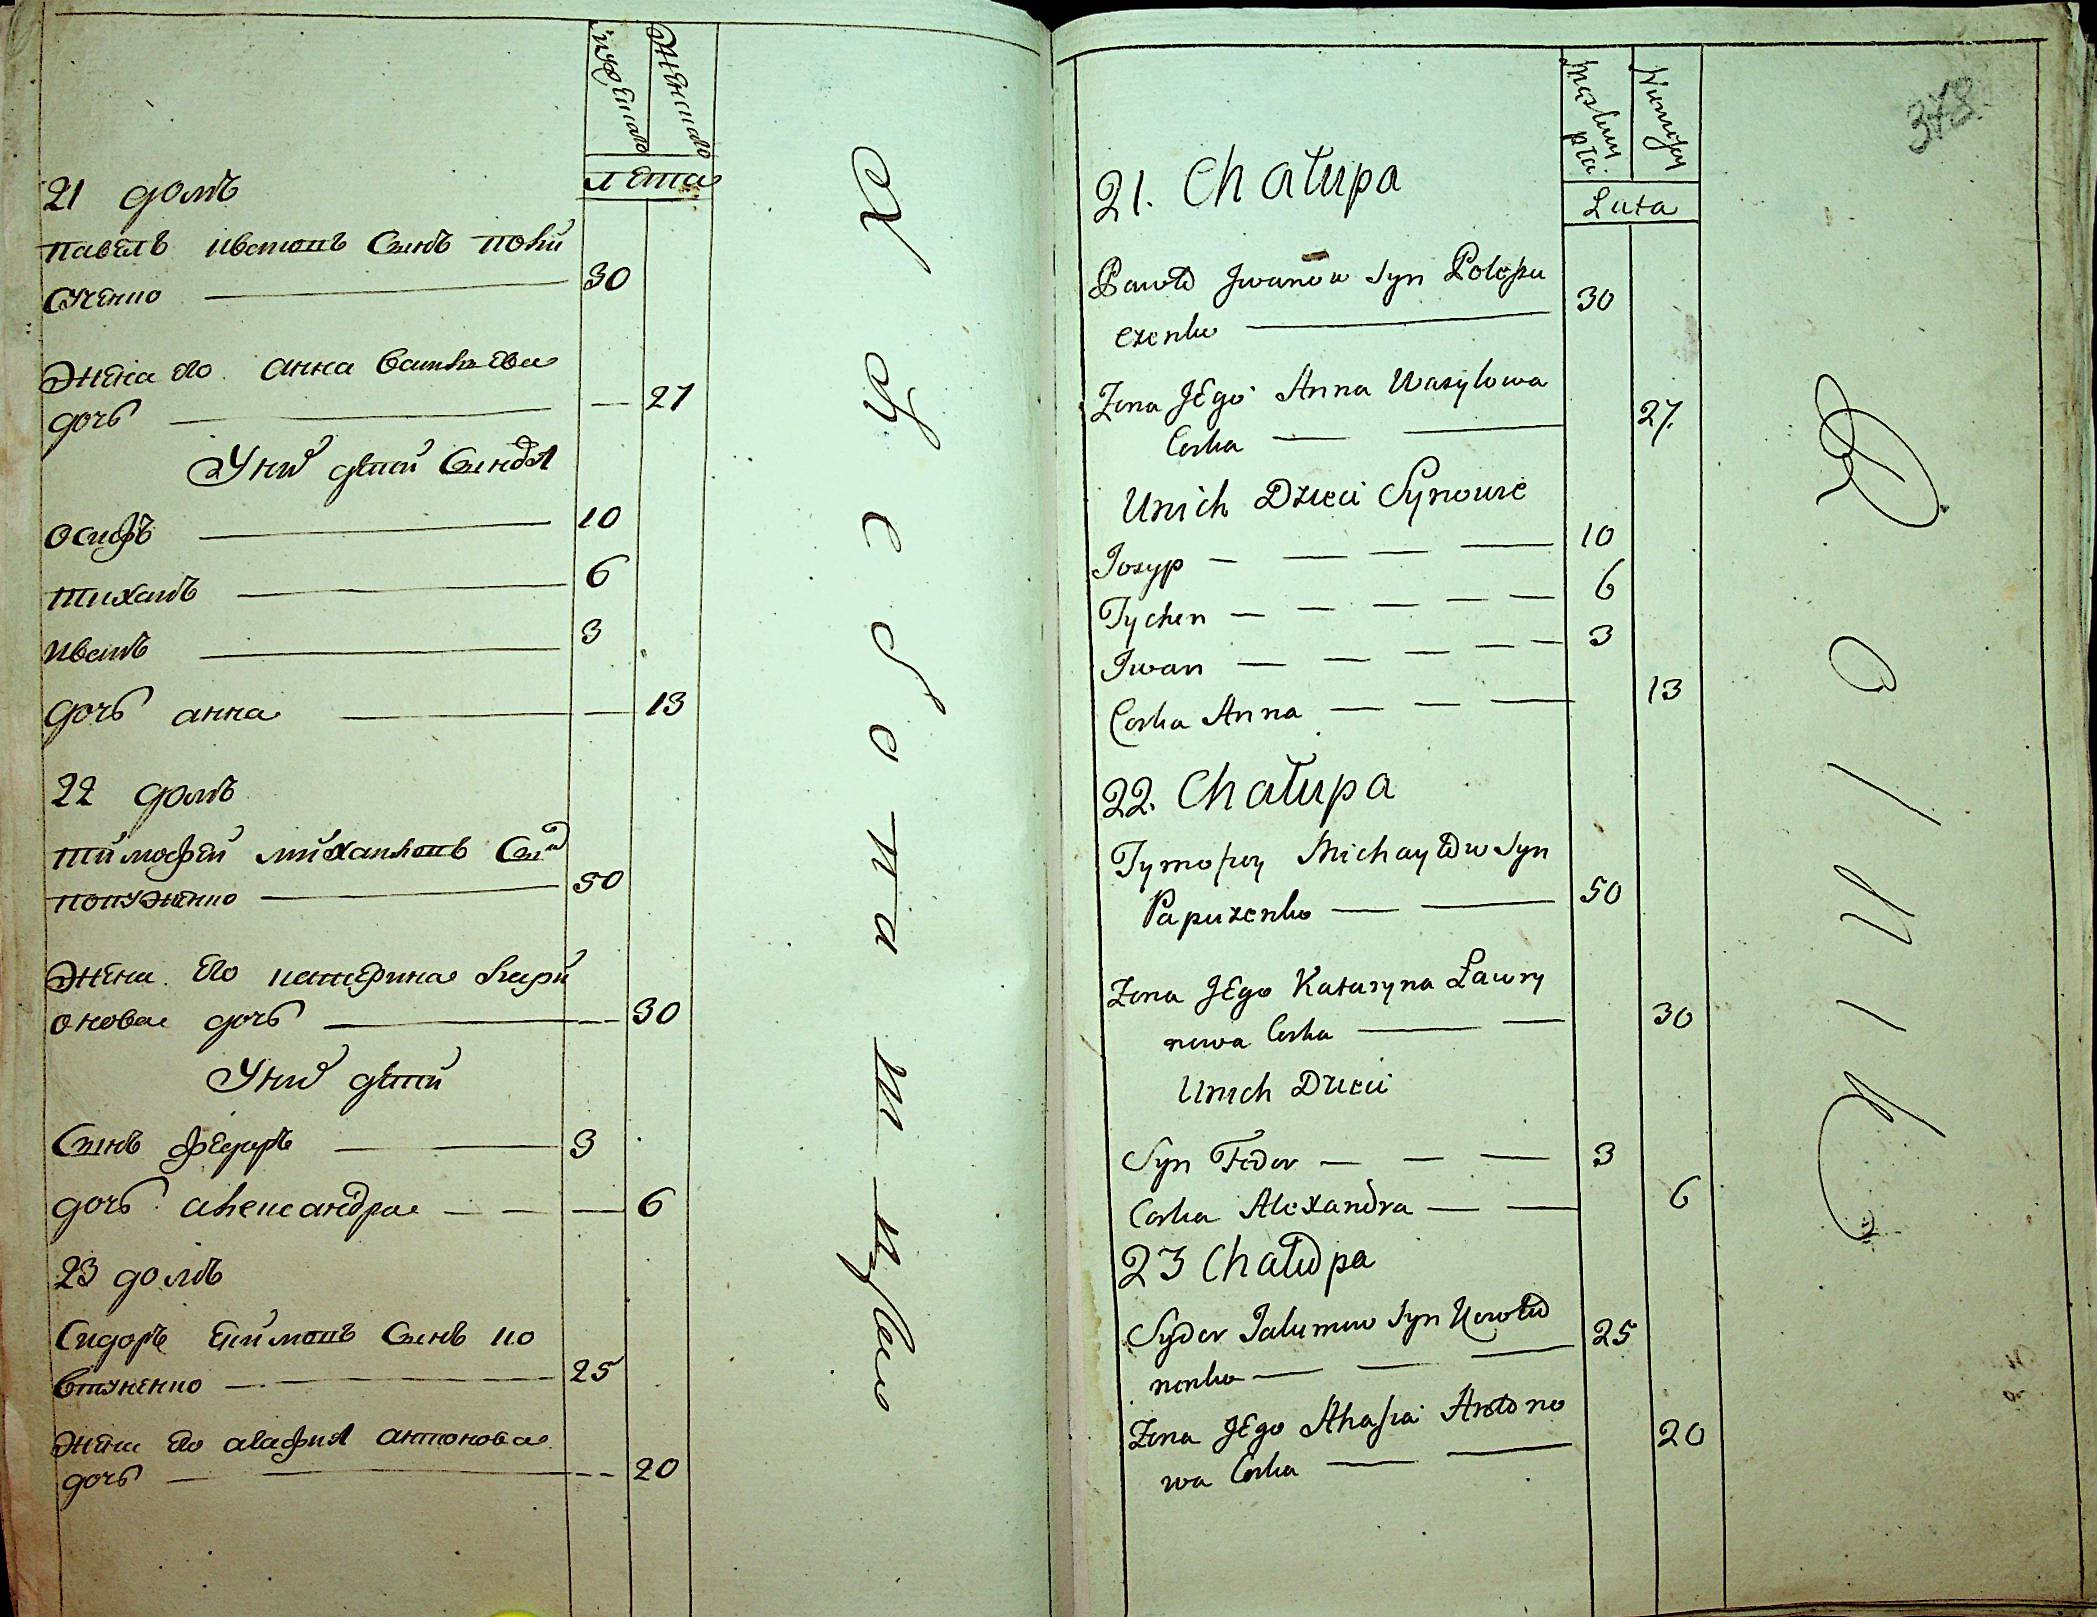 мужеска
женска
лета
21 домъ
павелъ ивановъ Сынъ поли
сученко 30
жена его анна василева
дочь 27
У них дети Сыновя
осифъ 10
тиханъ 6
иванъ 3
дочь анна 13
22 домъ
тимофей михаиловъ Сын
попуженко 50
жена его катерина лаври
онова дочь 30
У них дети
Сынъ федоръ 3
дочь александра 6
23 домъ
Сидоръ Сынъ ко
втуненко 25
жена его агафия антонова
дочь 20
378
Męskay
płci
Niewiesci
Lata
21. Chałupa
Paweł Jwanow Syn
czenko 30
Zona JEgo Anna Wasylowa
Corka 27.
Unich Dzieci Synowie
Iozyp 10
Tychen 6
Jwan 3
Corka Anna 13
22. Chałupa
Tymofiey Michayłow Syn
Papuzenko 50
Zona JEgo Kataryna Ławry
nowa Corka 30
Unich Dzieci
Syn Fedor 3
Corka Alexandra 6
23 Chałupa
Sydor Syn
nenko 25
Zona JEgo Ahafia Antono
wa Corka 20